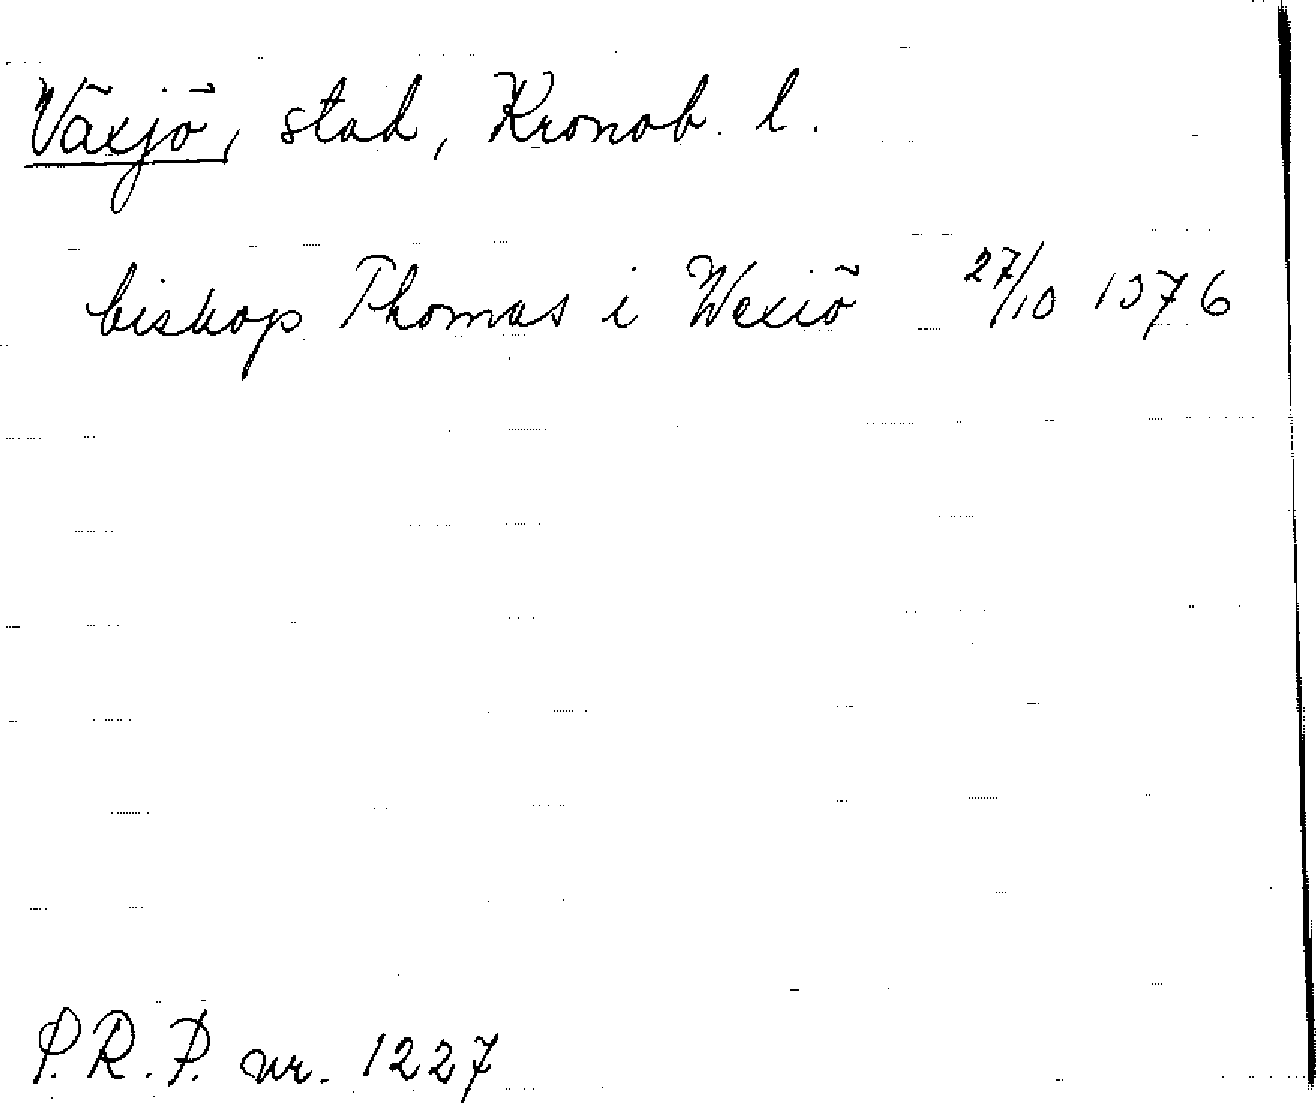 Växjö, stad, Kronob. l.
biskop Thomas i Wexiö 27/10 1376
S.R.P. nr. 1227